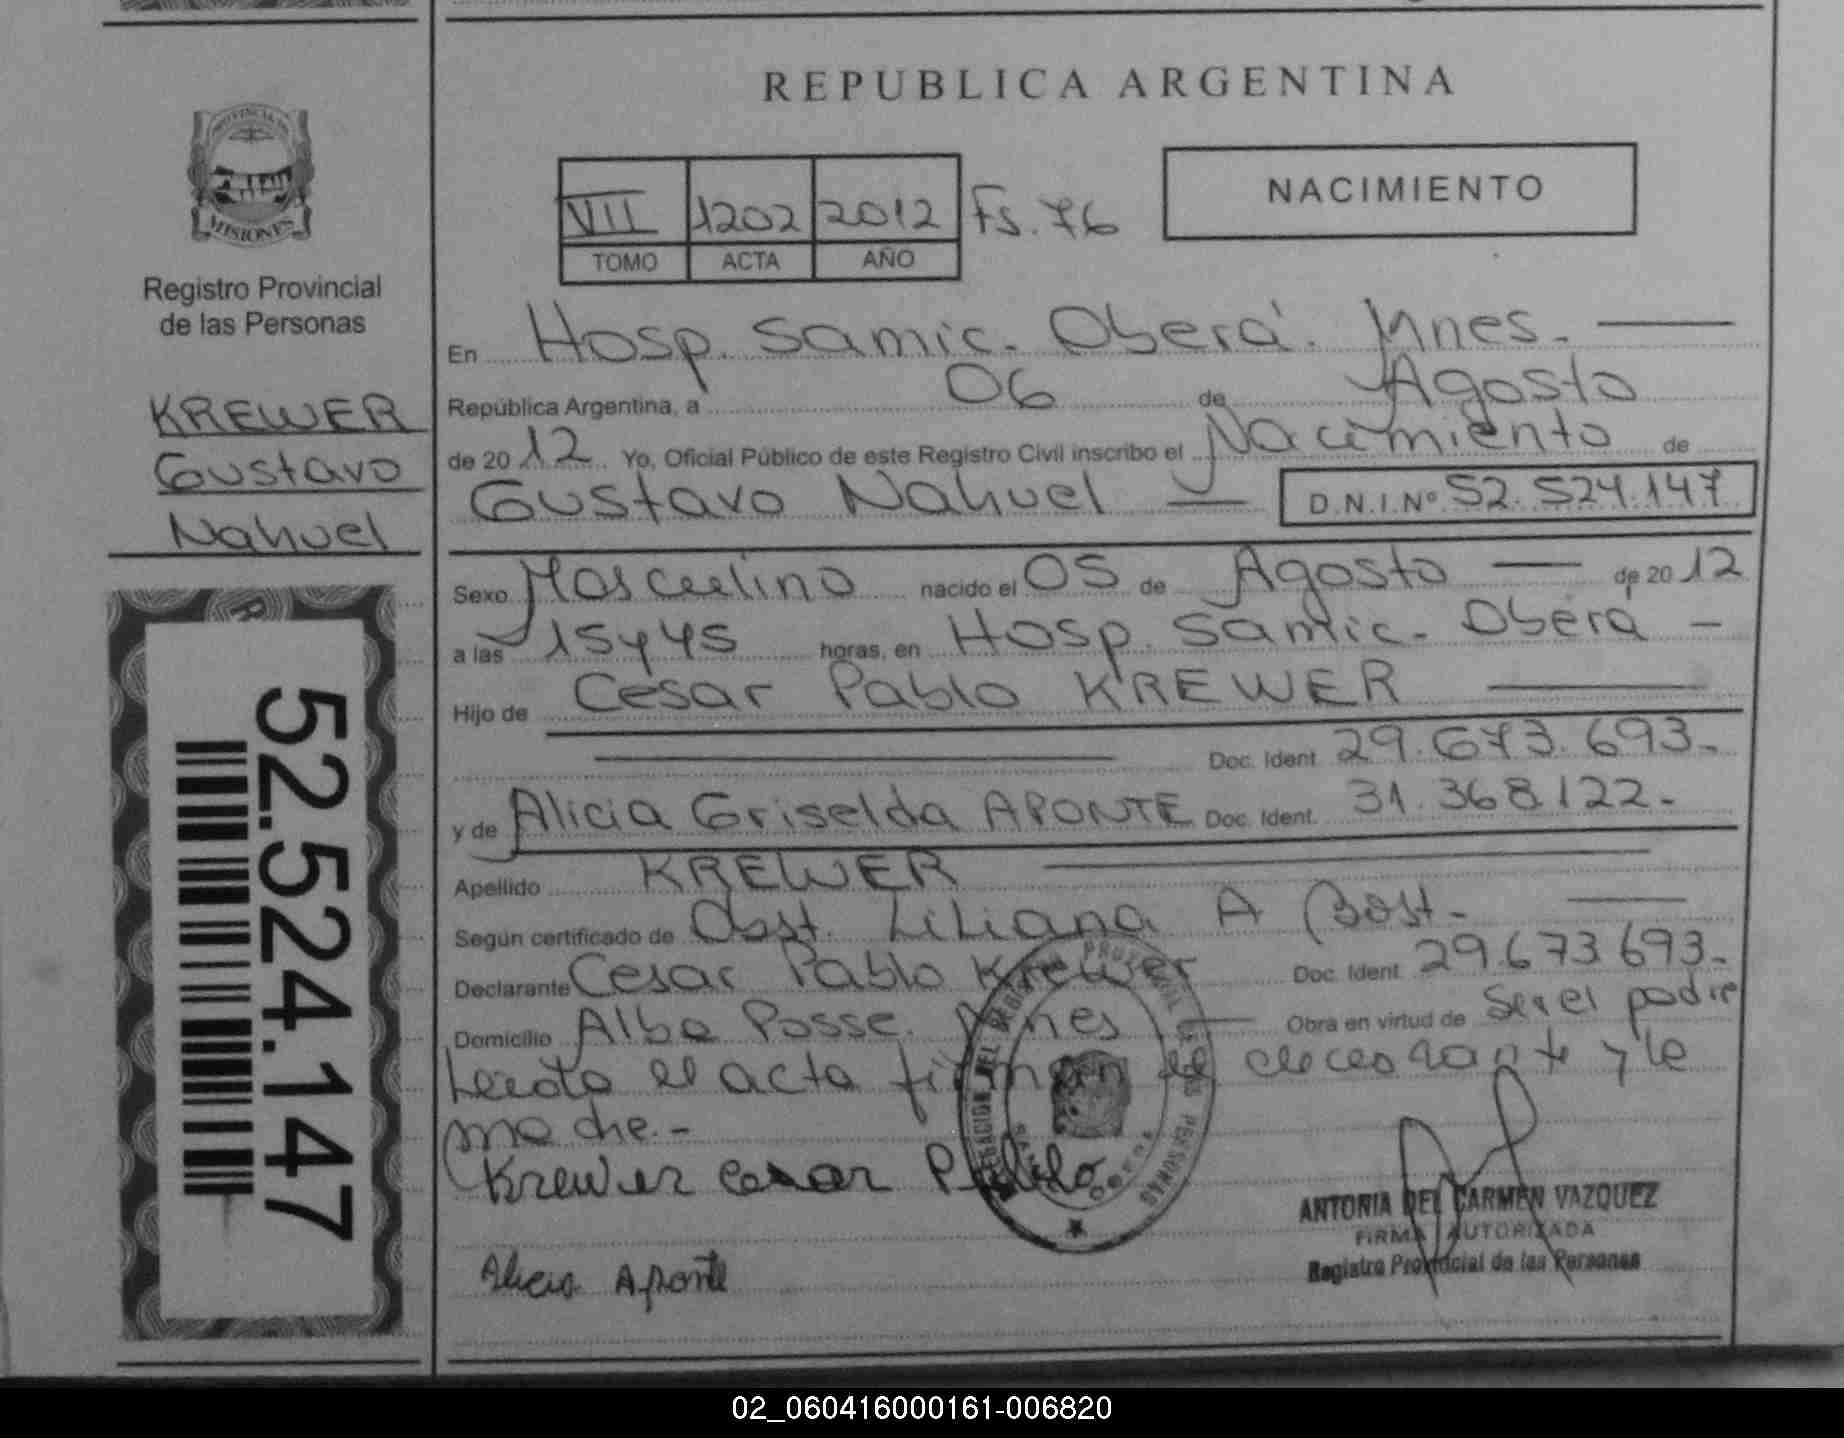 REPUBLICA ARGENTINA
PROVINCIA DE
MISIONES
Registro Provincial
de las Personas
KREWER
Gustavo
Nahuel
52.524.147
VII 1202 2012 Fs. 76
TOMO ACTA AÑO
NACIMIENTO
En Hosp. Samic. Oberá. Mnes.
República Argentina, a 06 de Agosto
de 20 12 Yo, Oficial Público de este Registro Civil inscribo el Nacimiento de
Gustavo Nahuel — D.N.I.Nº 52.524.147
Sexo Masculino nacido el 05 de Agosto — de 20 12
a las 15 y 45 horas, en Hosp. Samic. Oberá —
Hijo de Cesar Pablo KREWER
Doc. Ident. 29.673.693.-
y de Alicia Griselda APONTE Doc. Ident. 31.368.122.-
Apellido KREWER
Según certificado de Obst. Liliana A Bost.-
Declarante Cesar Pablo Krewer Doc. Ident. 29.673.693.-
Domicilio Alba Posse. Mnes — Obra en virtud de ser el padre
Leida el acta firman el declarante y la
madre.-
Krewer Cesar Pablo
Alicia Aponte
DELEGACION DEL REGISTRO PROVINCIAL DE LAS PERSONAS
OBERA
ANTONIA DEL CARMEN VAZQUEZ
FIRMA AUTORIZADA
Registro Provincial de las Personas
02_060416000161-006820